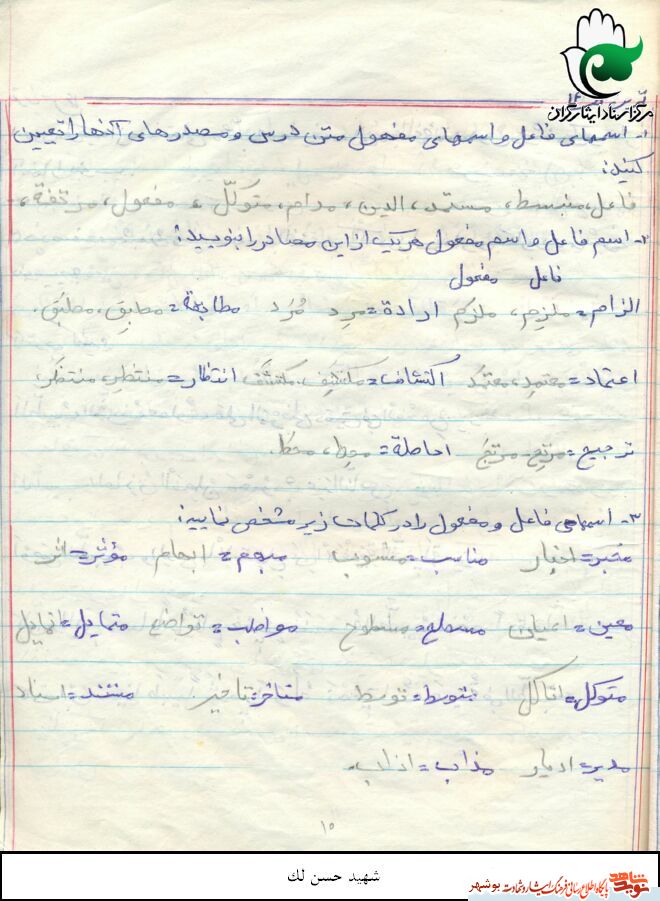 مرکز اسناد ایثارگران
۱- اسمهای فاعل و اسمهای مفعول متن درس و مصدرهای آنها را تعیین
کنید:
فاعل، منبسط، مستمد، الدین، مرام، متوکّل، مفعول، مرتفقة،
۲- اسم فاعل و اسم مفعول هر یک از این مصادر را بنویسید:
فاعل مفعول
الزام = ملزِم، ملزَم ارادة = مرِد مُرَد مطابقة = مطابِق، مطبَق.
اعتماد = معتمِد، معتمَد اکتشاف = مکتشِف، مکتشَف انتظار = منتظِر، منتظَر،
ترجیح = مرتجِح مرتجَح احاطة = محِط، محَط.
۳- اسمهای فاعل و مفعول را در کلمات زیر مشخص نمایید:
مخبر = اخبار مناسب = منسوب مبهم = ابهام مؤثر = اثر
معین = اعیان مسطح = مسطوح مواضب = تواضع متمایل = اتمایل
متوکل = اتاکل متوسط = توسط متاخر = تاخیر مستند = اسناد
مدیر = ادیار مذاب = اذاب.
۱۵
شهید حسن لك
نوید شاهد پایگاه اطلاع رسانی فرهنگ ایثار و شهادت بوشهر